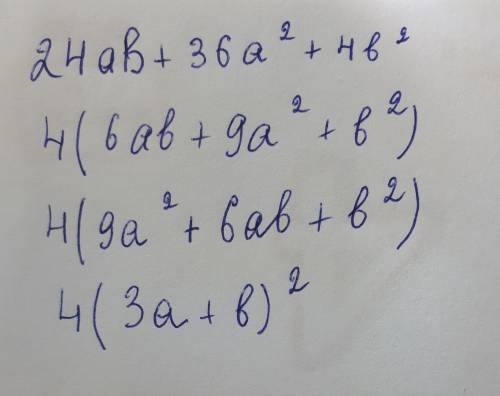 24ab + 36a² + 4b²
4(6ab + 9a² + b²)
4(9a² + 6ab + b²)
4(3a + b)²